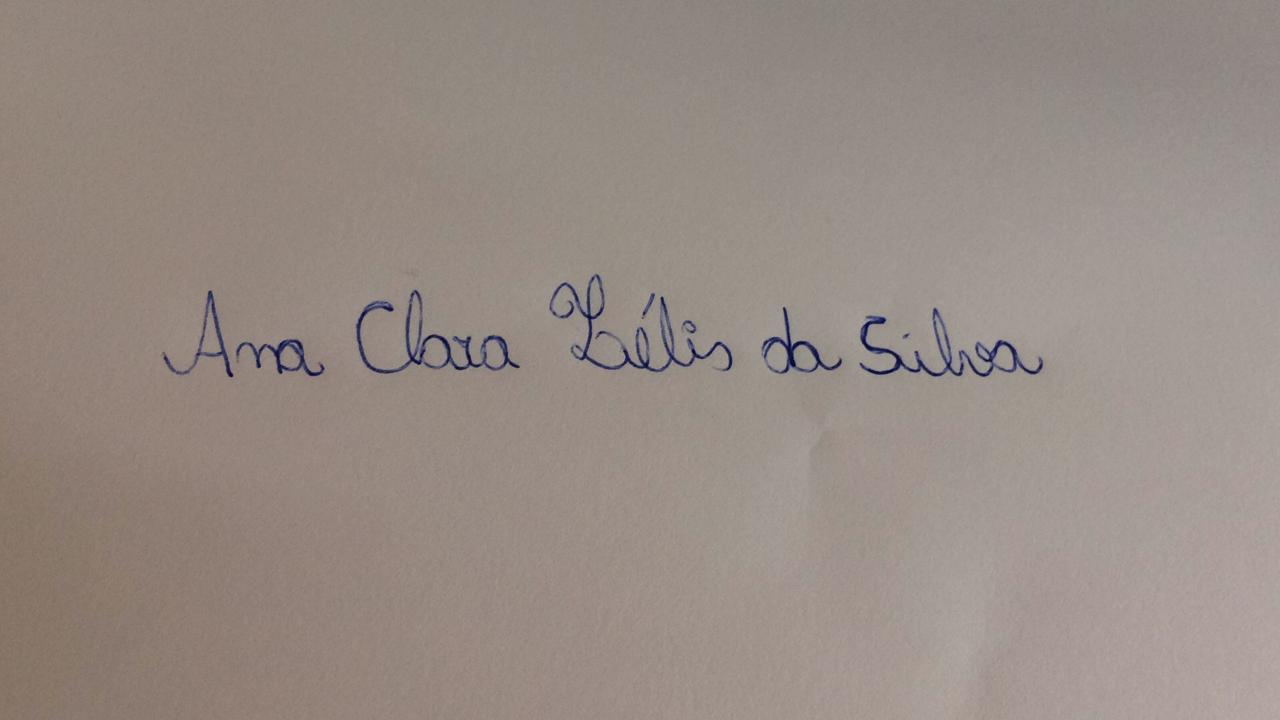 Ana Clara Zélis da Silva